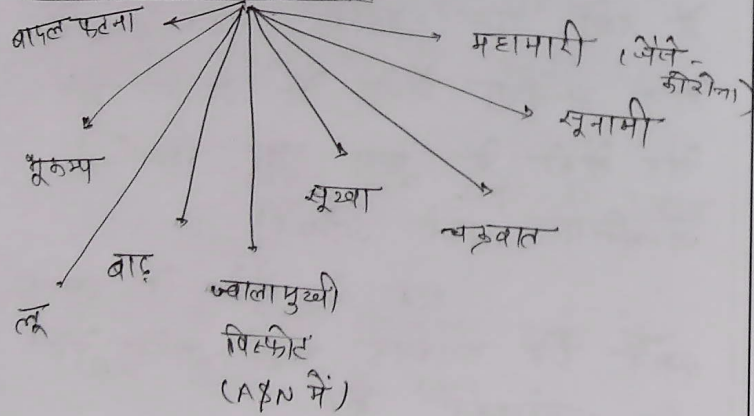 बादल फटना
महामारी (जैसे -
कोरोना)
सूनामी
भूकम्प
सूखा
चक्रवात
बाढ़
ज्वालामुखी
विस्फोट
(A&N में)
लू